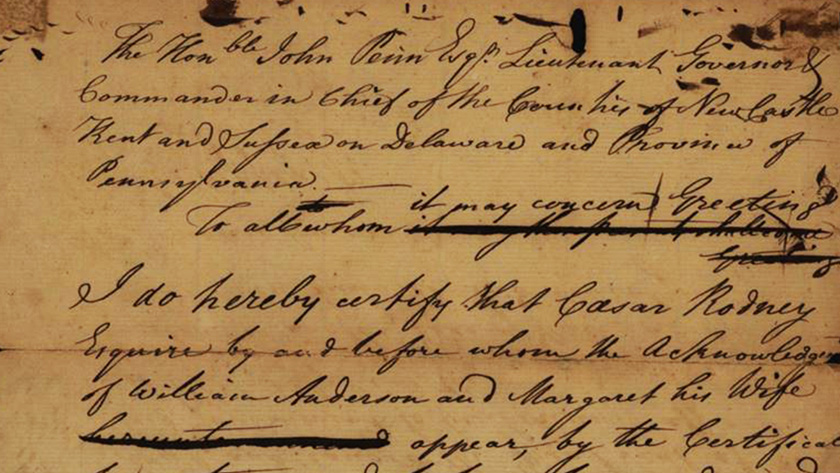 The Honble John Penn Esqr. Lieutenant Governor &
Commander in Chief of the Counties of New Castle
Kent and Sussex on Delaware and Province of
Pennsylvania.
it may concern Greeting
To all whom it
Greeting
I do hereby certify that Cæsar Rodney
Esquire by and before whom the Acknowledgm
of William Anderson and Margaret his Wife
hereunto appear, by the Certifica